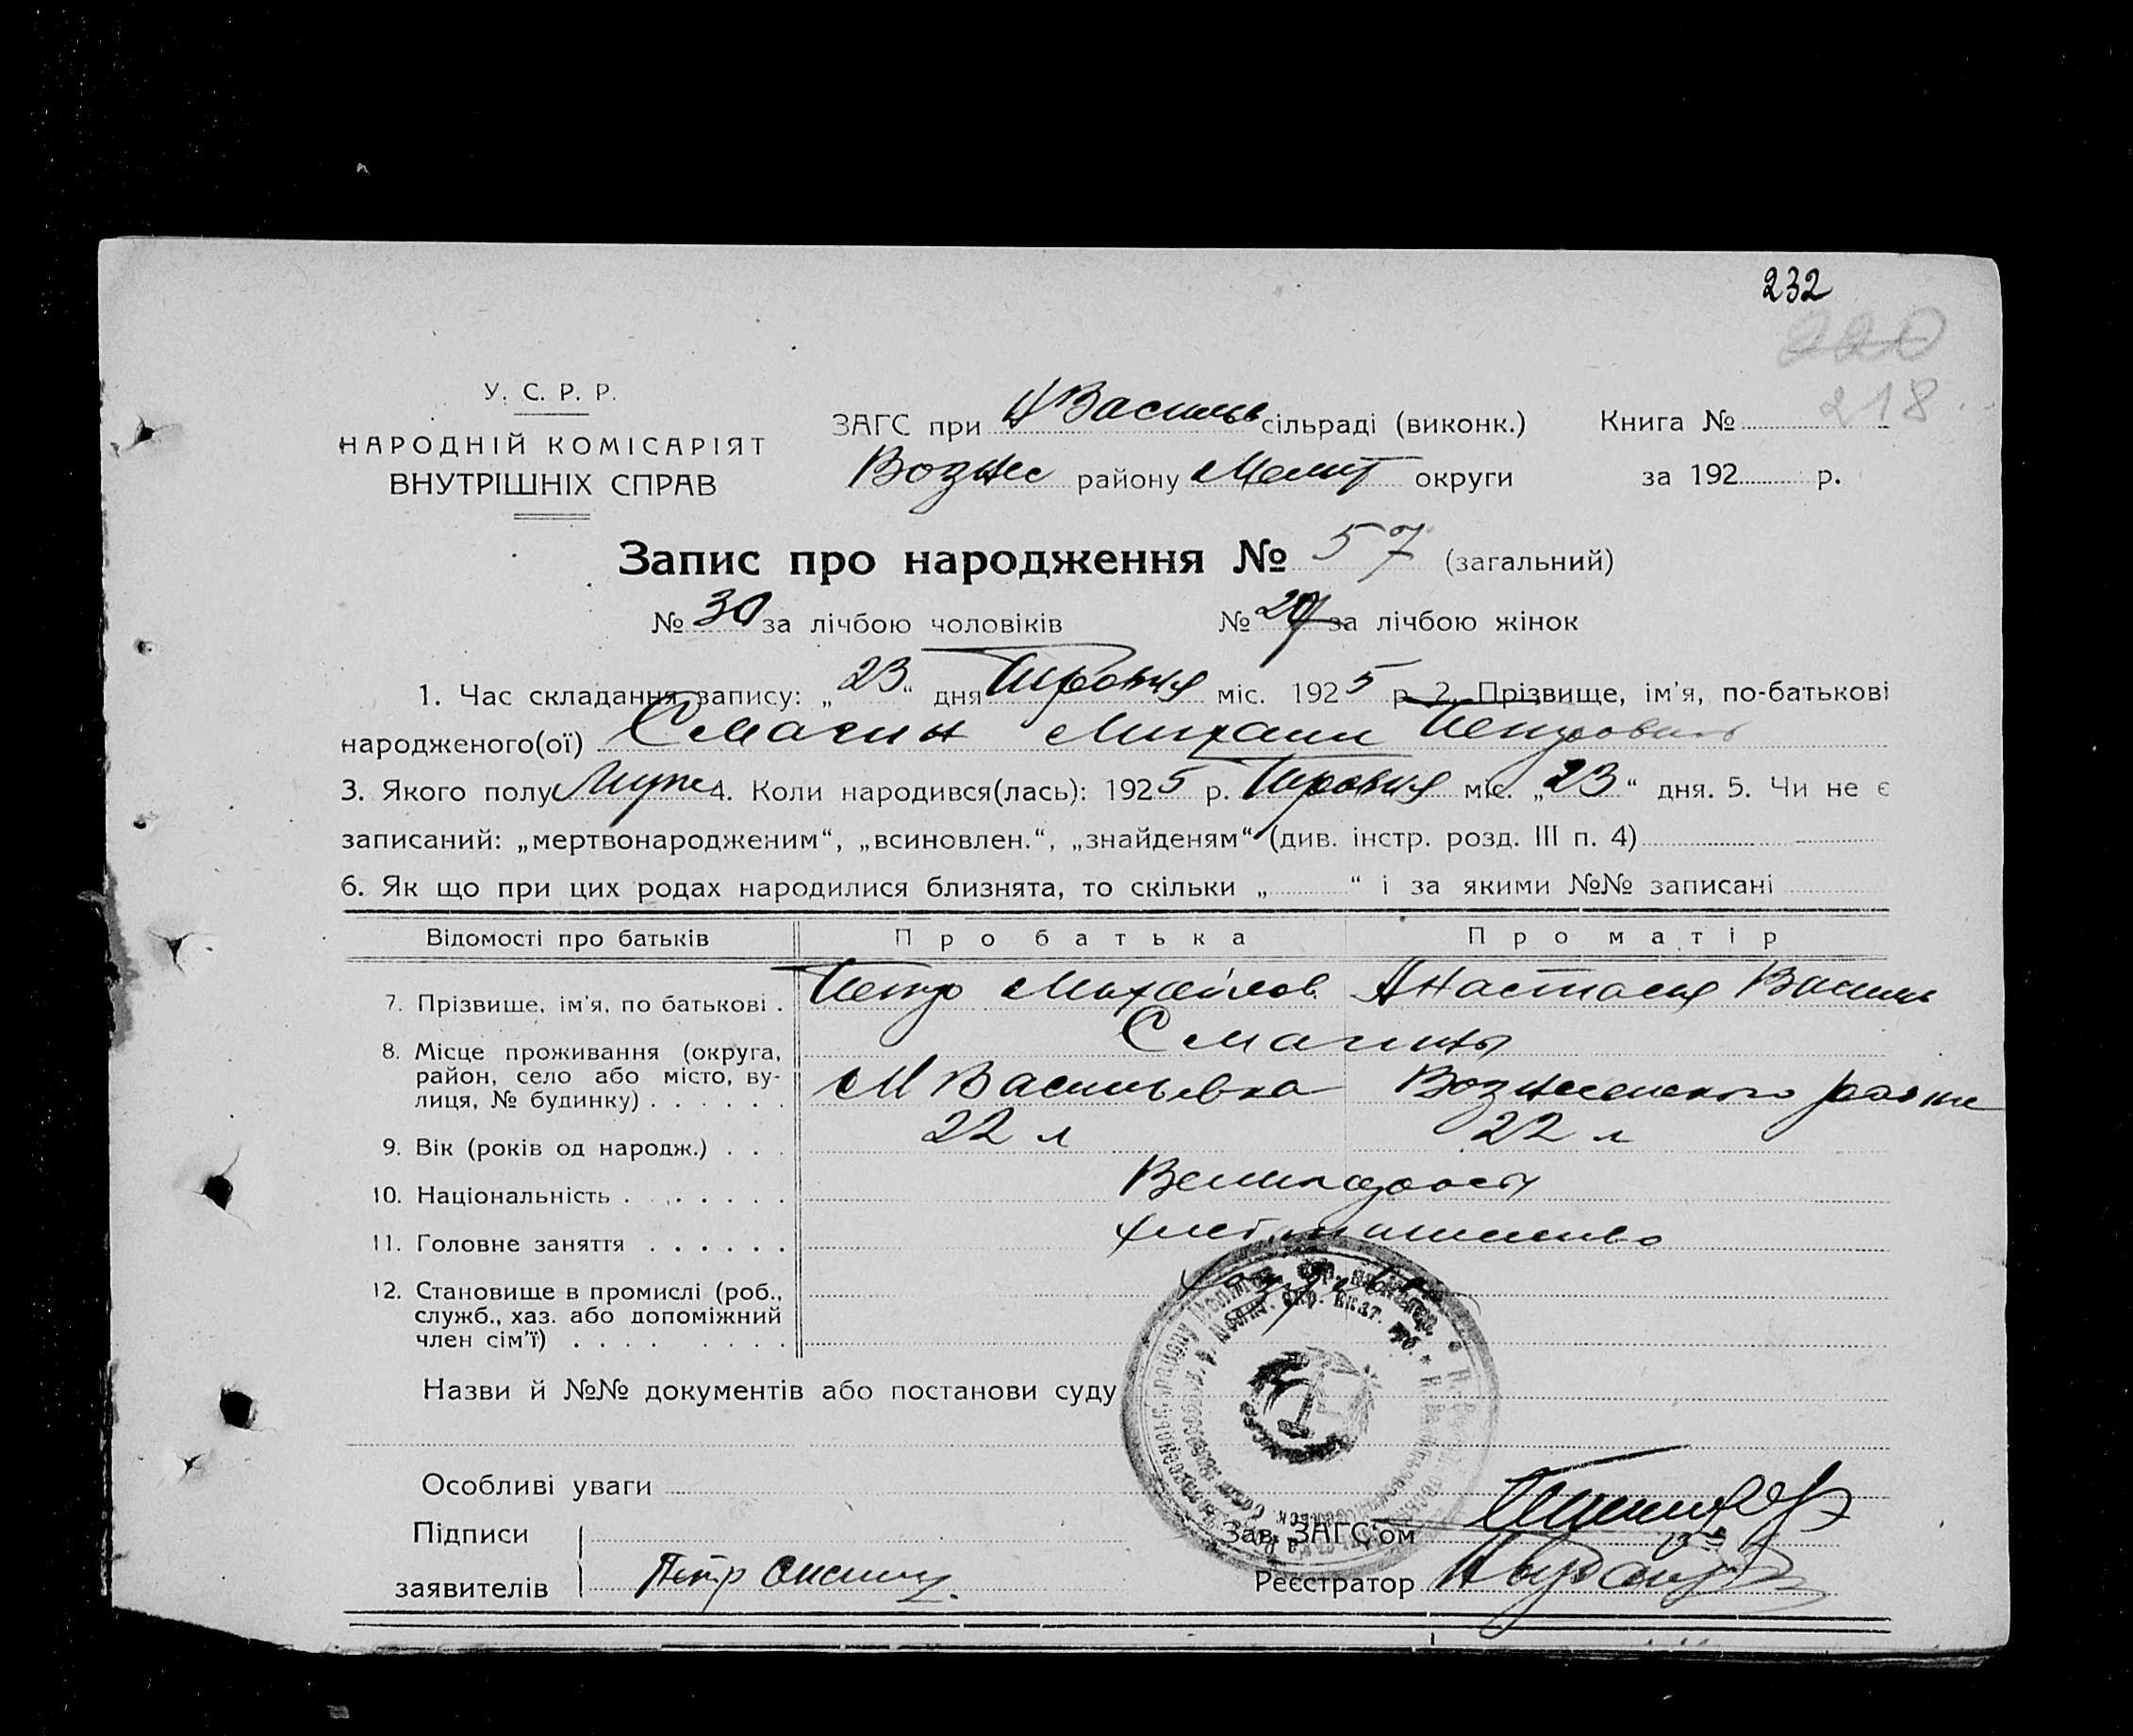 232
220
218
У. С. Р. Р.
НАРОДНІЙ КОМІСАРІЯТ
ВНУТРІШНІХ СПРАВ
ЗАГС при Васильв сільраді (виконк.) Книга №
Вознес району Мелит округи за 192 р.
Запис про народження № 57 (загальний)
№ 30 за лічбою чоловіків № 27 за лічбою жінок
1. Час складання запису: „23“ дня міс. 1925 р. 2. Прізвище, ім'я, по-батькові
народженого(ої) Смагин Михаил Петрович
3. Якого полу Муж 4. Коли народився(лась): 1925 р. міс. „23“ дня. 5. Чи не є
записаний: „мертвонародженим“, „всиновлен.“, „знайденям“ (див. інстр. розд. III п. 4)
6. Як що при цих родах народилися близнята, то скільки „ “ і за якими №№ записані
Відомості про батьків Про батька Про матір
7. Прізвище, ім'я, по батькові . Петр Михайлов. Анастасия Василь
Смагины
8. Місце проживання (округа,
район, село або місто, ву-
лиця, № будинку) . . . . . . М Васильевка Вознесенского района
9. Вік (років од народж.) . . . 22 л 22 л
10. Національність . . . . . . . Великоросы
11. Головне заняття . . . . . . хлебопашество
12. Становище в промислі (роб.,
служб., хаз. або допоміжний
член сім'ї) . . . . . . . .
Назви й №№ документів або постанови суду
Особливі уваги
Підписи
заявителів Петр
Зав. ЗАГС'ом
Реєстратор